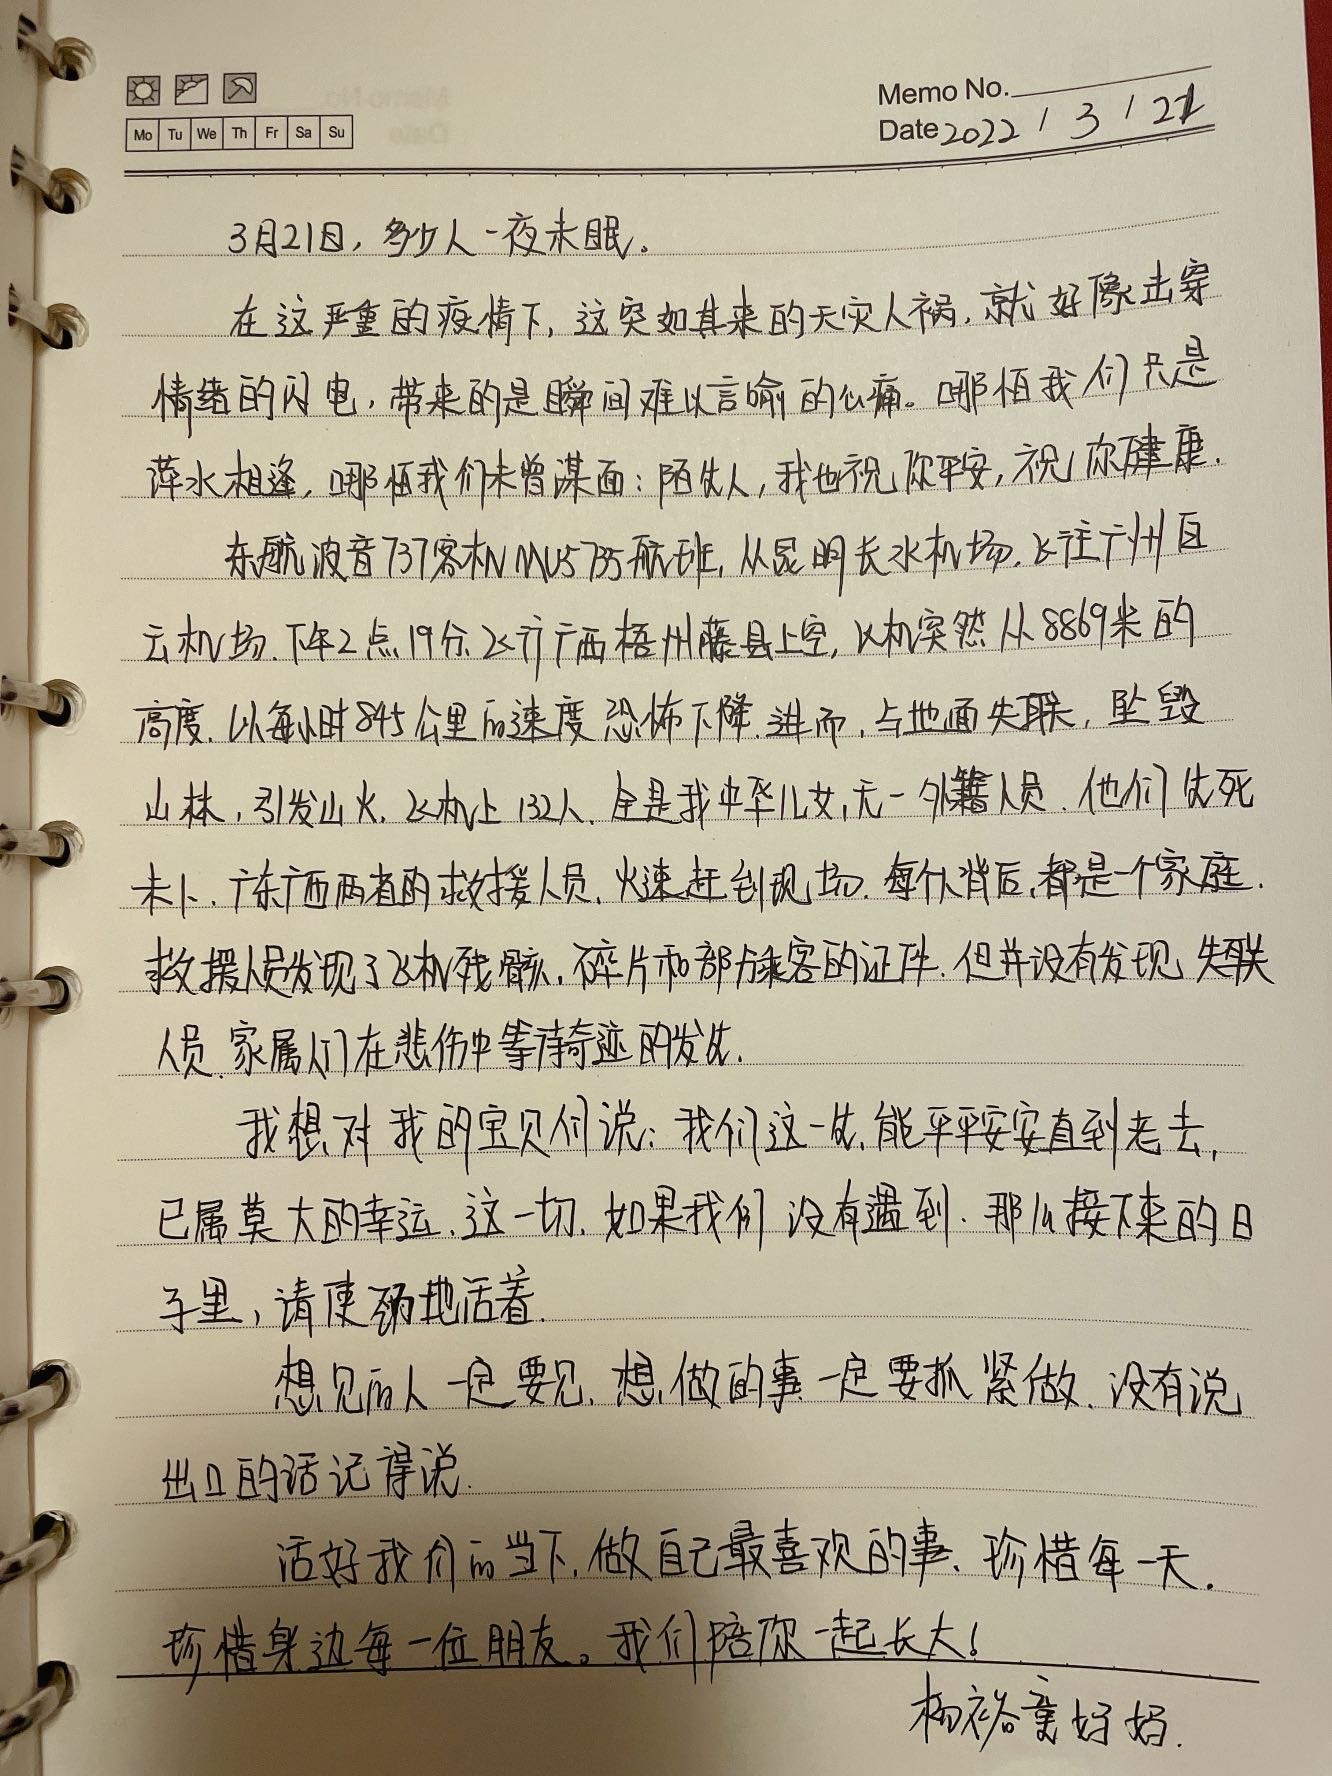 Memo No.
Mo Tu We Th Fr Sa Su
Date 2022 / 3 / 21
3月21日，多少人一夜未眠。
在这严重的疫情下，这突如其来的天灾人祸，就好像击穿
情绪的闪电，带来的是瞬间难以言喻的心痛。哪怕我们只是
萍水相逢，哪怕我们未曾谋面：陌生人，我也祝你平安，祝你健康.
东航波音737客机MU5735航班，从昆明长水机场.飞往广州白
云机场.下午2点19分飞行广西梧州藤县上空，飞机突然从8869米的
高度.以每小时845公里的速度恐怖下降.进而，与地面失联，坠毁
山林，引发山火.飞机上132人.全是我中华儿女,无一外籍人员.他们生死
未卜.广东广西两省的救援人员.火速赶到现场.每个人背后,都是一个家庭.
救援人员发现了飞机残骸，碎片和部分乘客的证件.但并没有发现失联
人员.家属们在悲伤中等待奇迹的发生.
我想对我的宝贝们说：我们这一生.能平平安安直到老去，
已属莫大的幸运.这一切.如果我们没有遇到.那么接下来的日
子里，请使劲地活着.
想见的人一定要见.想做的事一定要抓紧做.没有说
出口的话记得说.
活好我们的当下.做自己最喜欢的事.珍惜每一天.
珍惜身边每一位朋友。我们陪你一起长大！
杨裕 妈妈.